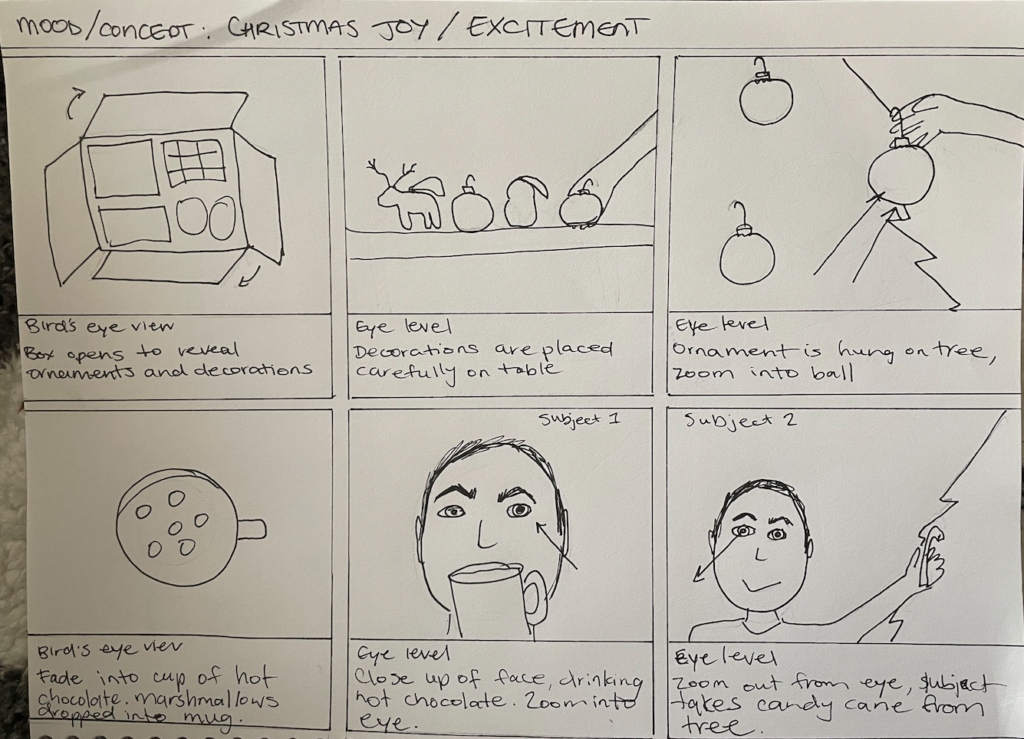 MOOD/CONCEPT: CHRISTMAS JOY / EXCITEMENT
Bird's eye view
Box opens to reveal
ornaments and decorations
Eye level
Decorations are placed
carefully on table
Eye level
Ornament is hung on tree,
zoom into ball
Bird's eye view
Fade into cup of hot
chocolate. marshmallows
dropped into mug.
Subject 1
Eye level
Close up of face, drinking
hot chocolate. Zoom into
eye.
Subject 2
Eye level
Zoom out from eye, subject
takes candy cane from
tree.